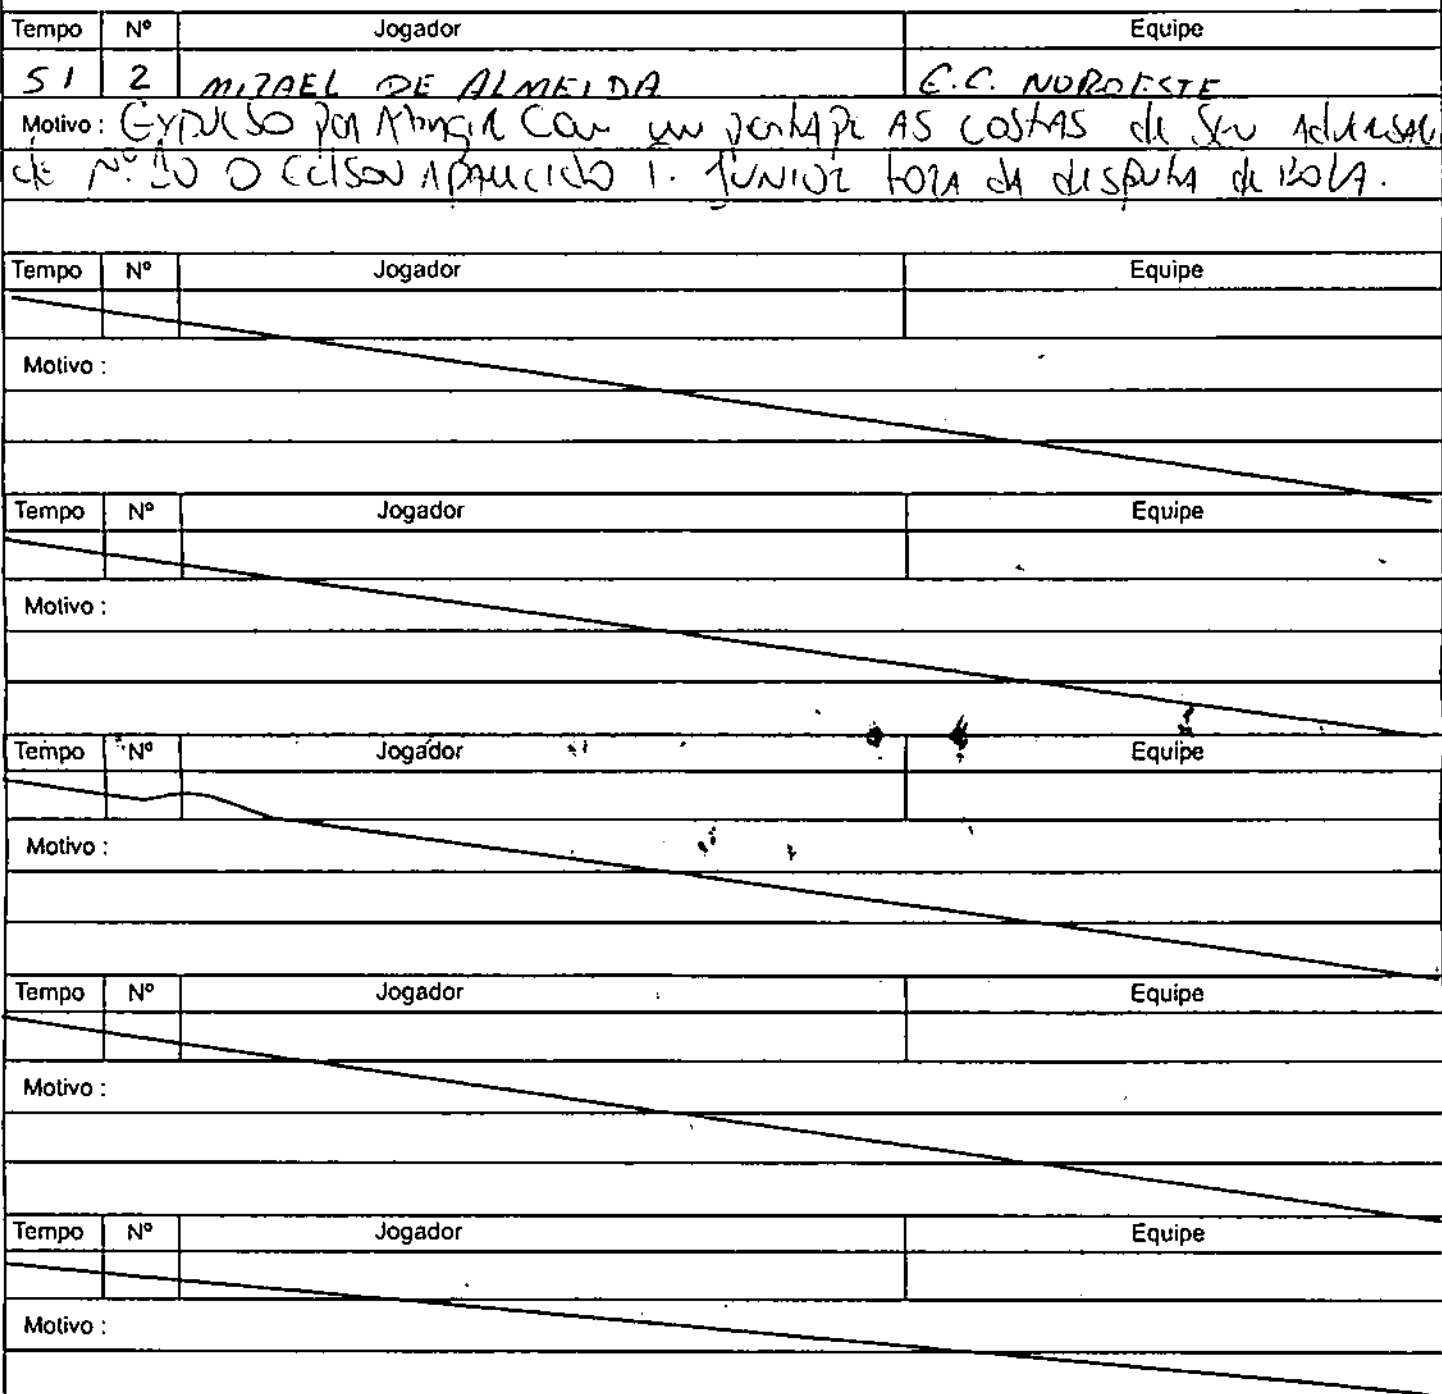 Tempo Nº Jogador Equipe
51 2 MIZAEL DE ALMEIDA E.C. NOROESTE
Motivo : Expulso por Atingir com um pontapé AS COSTAS de seu Adversár
de Nº 10 O APARECIDO JUNIOR FORA dA disputa de BOLA.
Tempo Nº Jogador Equipe
Motivo :
Tempo Nº Jogador Equipe
Motivo :
Tempo Nº Jogador Equipe
Motivo :
Tempo Nº Jogador Equipe
Motivo :
Tempo Nº Jogador Equipe
Motivo :